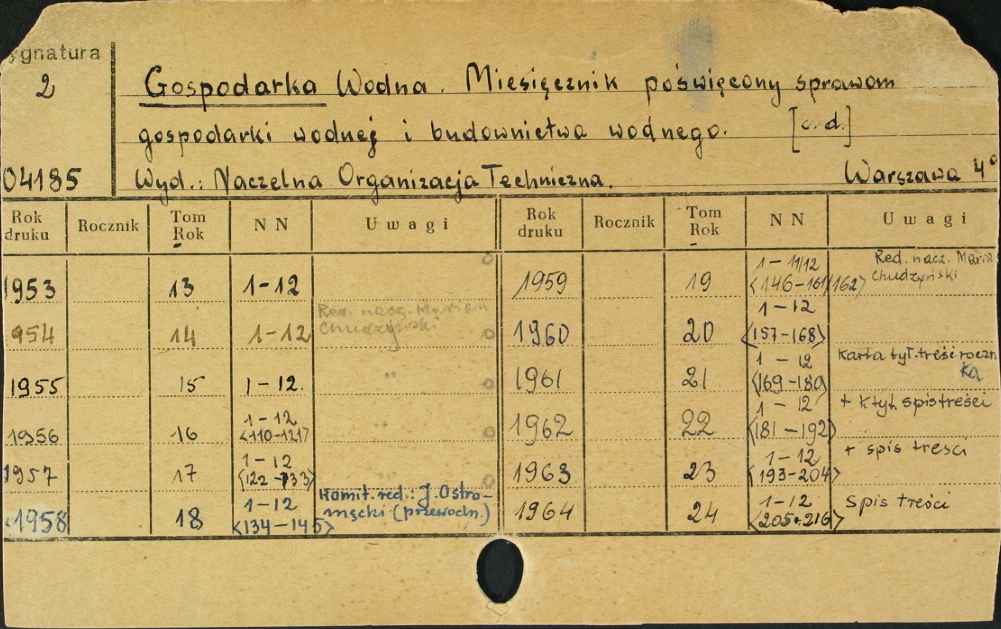 ygnatura
2
Gospodarka Wodna. Miesięcznik poświęcony sprawom
gospodarki wodnej i budownictwa wodnego. [c.d.]
04185
Wyd.: Naczelna Organizacja Techniczna. Warszawa 4°
Rok druku Rocznik Tom Rok NN Uwagi
1953 13 1-12
954 14 1-12 Red. nacz. Marian Chudzyński
1955 15 1-12. "
1956 16 1-12 <110-121> "
1957 17 1-12 <122-133> "
1958 18 1-12 <134-145> Komit. red.: J. Ostromęcki (przewodn.)
Rok druku Rocznik Tom Rok NN Uwagi
1959 19 1-11/12 <146-161/162> Red. nacz. Marian Chudzyński
1960 20 1-12 <157-168>
1961 21 1-12 <169-180> karta tyt. treści rocznika
1962 22 1-12 <181-192> + k tyt. spis treści
1963 23 1-12 <193-204> + spis treści
1964 24 1-12 <205-216> Spis treści